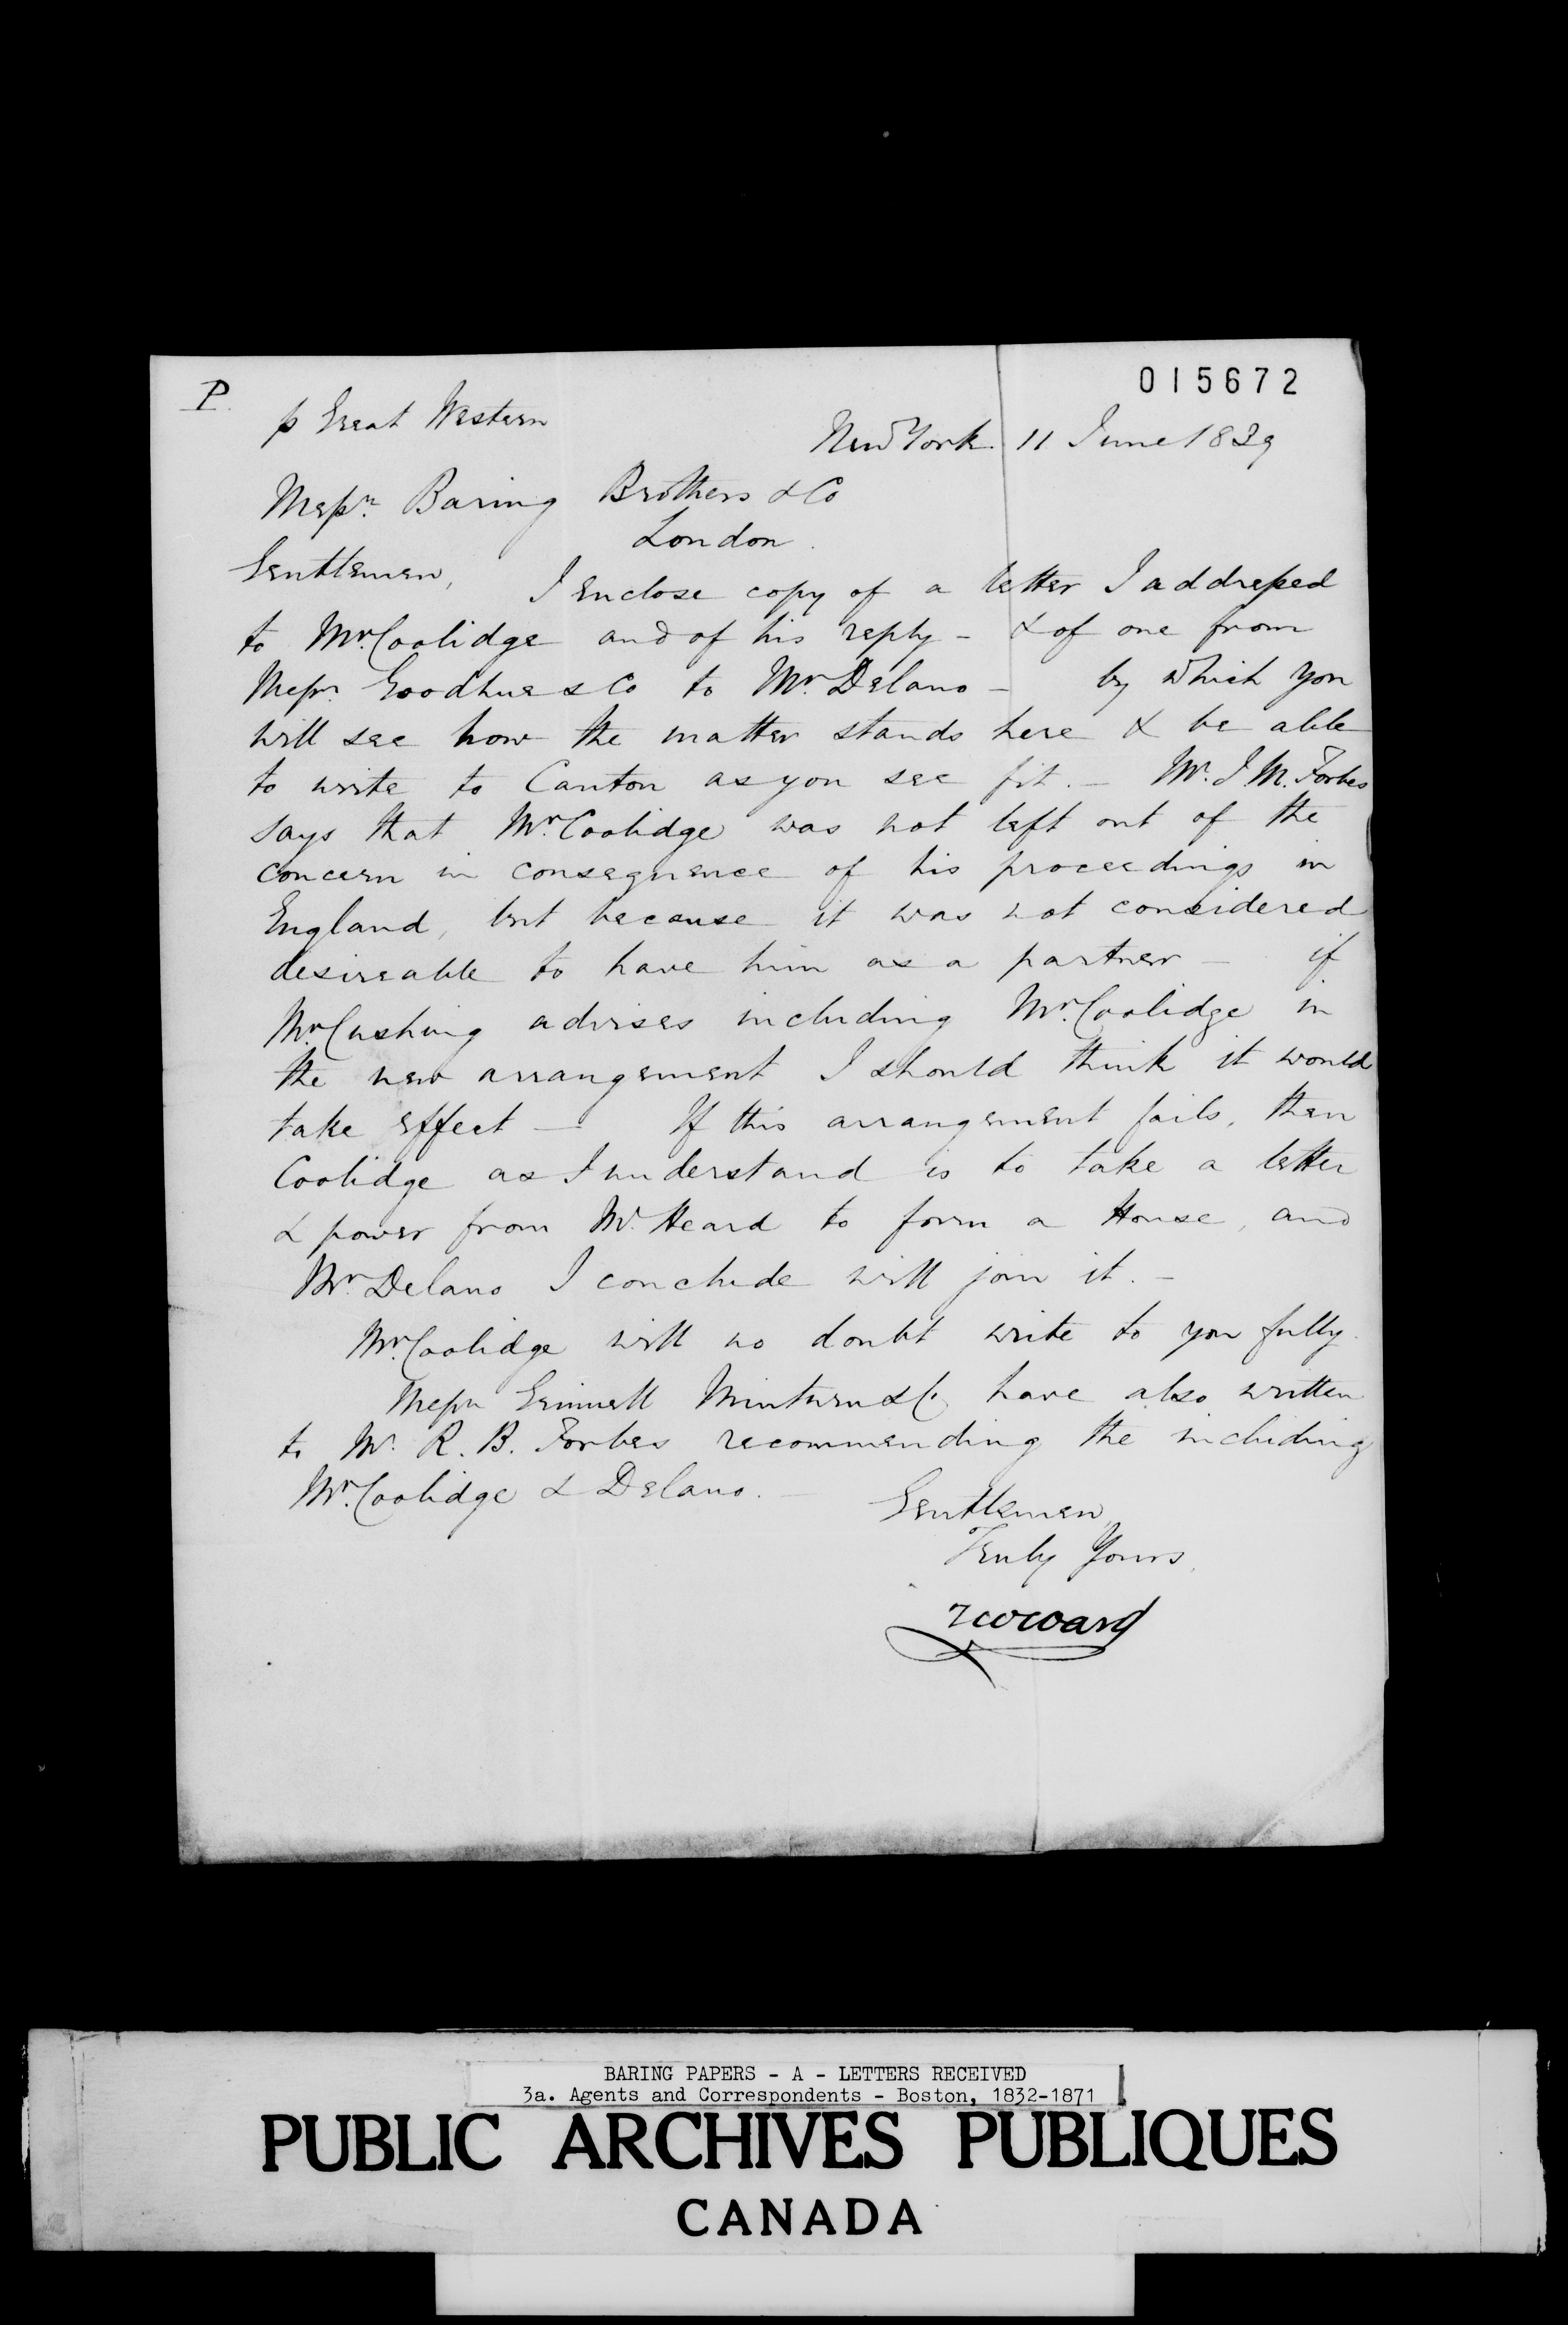 015672
P.
p Great Western
New York 11 June 1839
Messrs Baring Brothers & Co
London.
Gentlemen,
I enclose copy of a letter I addressed
to Mr. Coolidge and of his reply - & of one from
Messrs Goodhue & Co to Mr. Delano - by which you
will see how the matter stands here & be able
to write to Canton as you see fit. - Mr. J. M. Forbes
says that Mr. Coolidge was not left out of the
concern in consequence of his proceedings in
England, but because it was not considered
desireable to have him as a partner - if
Mr. Cushing advises including Mr. Coolidge in
the new arrangement I should think it would
take effect - If this arrangement fails, then
Coolidge as I understand is to take a letter
& power from Mr. Heard to form a House, and
Mr. Delano I conclude will join it. -
Mr. Coolidge will no doubt write to you fully.
Messrs Grinnell Minturn & Co have also written
to Mr. R. B. Forbes recommending the including
Mr. Coolidge & Delano. -
Gentlemen,
Truly Yours,
T W Ward
BARING PAPERS - A - LETTERS RECEIVED
3a. Agents and Correspondents - Boston, 1832-1871
PUBLIC ARCHIVES PUBLIQUES
CANADA